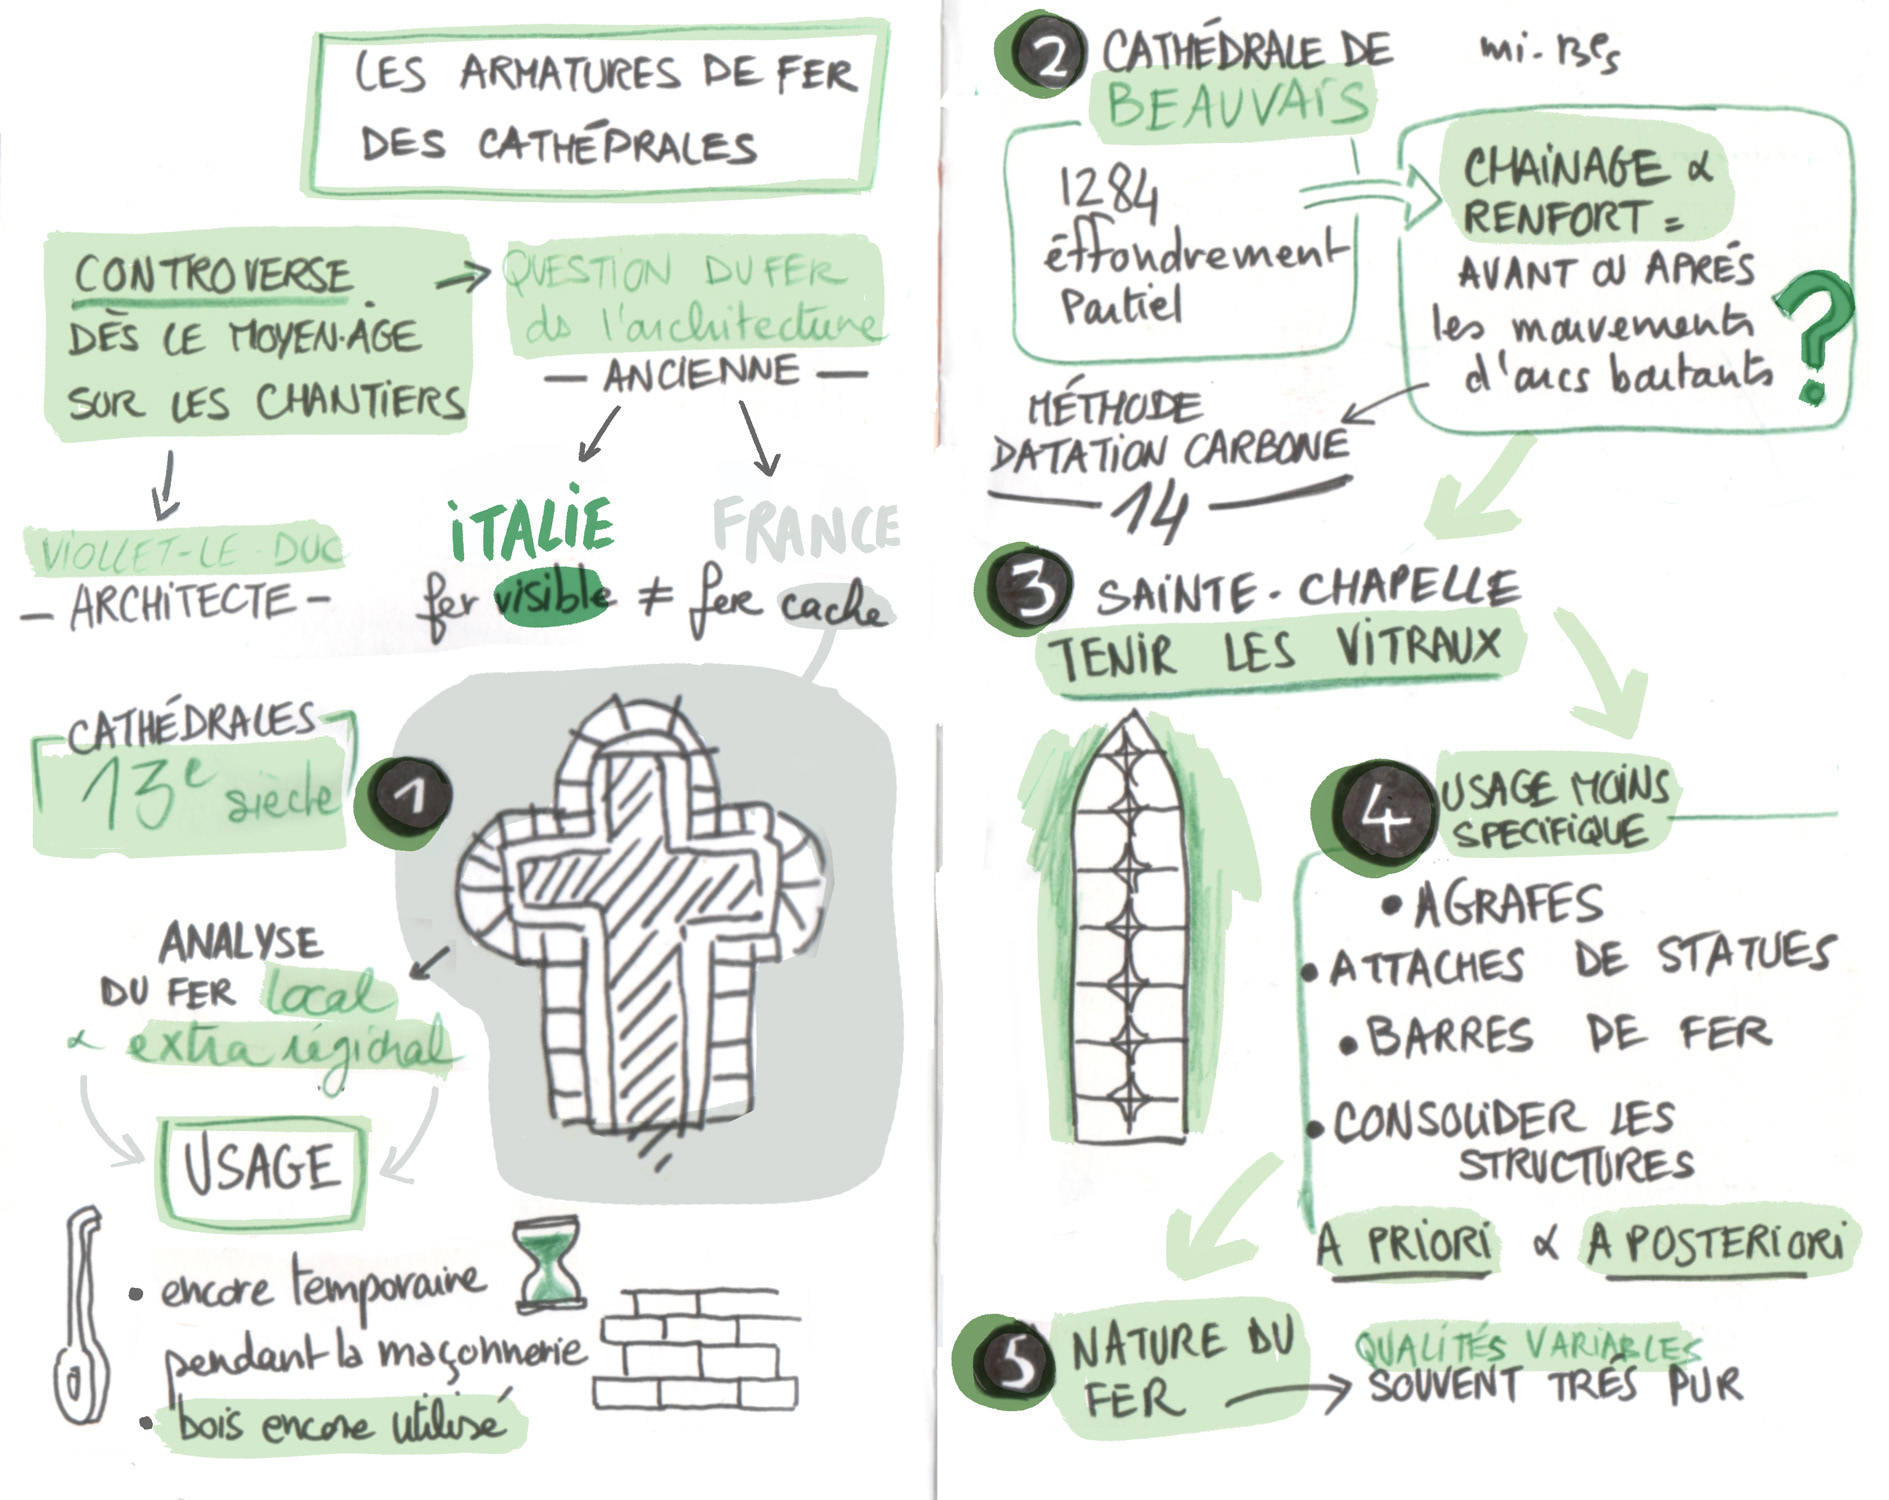 LES ARMATURES DE FER
DES CATHÉDRALES
CONTROVERSE
DÈS LE MOYEN-ÂGE
SUR LES CHANTIERS
QUESTION DU FER
ds l'architecture
— ANCIENNE —
VIOLLET-LE-DUC
— ARCHITECTE —
ITALIE
fer visible ≠ fer cache
FRANCE
CATHÉDRALES
13e siècle
1
ANALYSE
DU FER local
& extra régional
USAGE
• encore temporaire
pendant la maçonnerie
• bois encore utilisé
2 CATHÉDRALE DE
BEAUVAIS
1284
éffondrement
Partiel
CHAINAGE &
RENFORT =
AVANT OU APRÉS
les mouvements
d'arcs boutants
?
MÉTHODE
DATATION CARBONE
— 14 —
3 SAINTE-CHAPELLE
TENIR LES VITRAUX
4 USAGE MOINS
SPECIFIQUE
• AGRAFES
• ATTACHES DE STATUES
• BARRES DE FER
• CONSOLIDER LES
STRUCTURES
A PRIORI & A POSTERIORI
5 NATURE DU
FER
QUALITÉS VARIABLES
SOUVENT TRÉS PUR